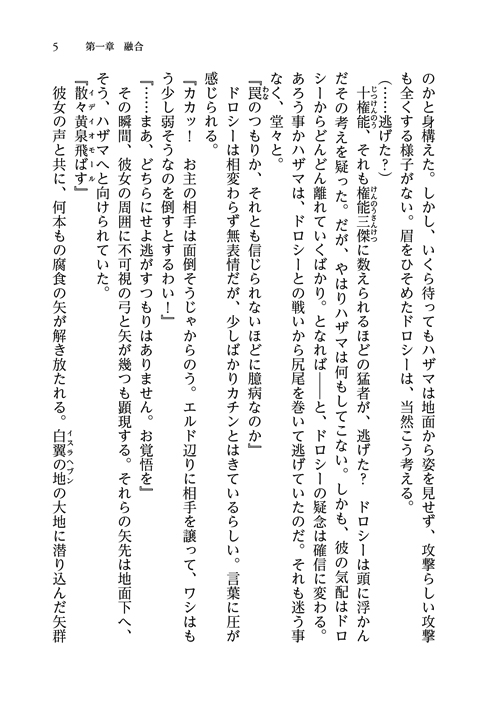 5　第一章　融合
のかと身構えた。しかし、いくら待ってもハザマは地面から姿を見せず、攻撃らしい攻撃
も全くする様子がない。眉をひそめたドロシーは、当然こう考える。
（……逃げた？）
十権能、それも権能三傑に数えられるほどの猛者が、逃げた？　ドロシーは頭に浮かん
じっけんのう
けんのうさんけつ
だその考えを疑った。だが、やはりハザマは何もしてこない。しかも、彼の気配はドロ
シーからどんどん離れていくばかり。となれば――と、ドロシーの疑念は確信に変わる。
あろう事かハザマは、ドロシーとの戦いから尻尾を巻いて逃げていたのだ。それも迷う事
なく、堂々と。
『罠のつもりか、それとも信じられないほどに臆病なのか』
わな
ドロシーは相変わらず無表情だが、少しばかりカチンとはきているらしい。言葉に圧が
感じられる。
『カカッ！　お主の相手は面倒そうじゃからのう。エルド辺りに相手を譲って、ワシはも
う少し弱そうなのを倒すとするわい！』
『……まあ、どちらにせよ逃がすつもりはありません。お覚悟を』
その瞬間、彼女の周囲に不可視の弓と矢が幾つも顕現する。それらの矢先は地面下へ、
そう、ハザマへと向けられていた。
『散々黄泉飛ばす』
イデイオモール
彼女の声と共に、何本もの腐食の矢が解き放たれる。白翼の地の大地に潜り込んだ矢群
イスラヘブン